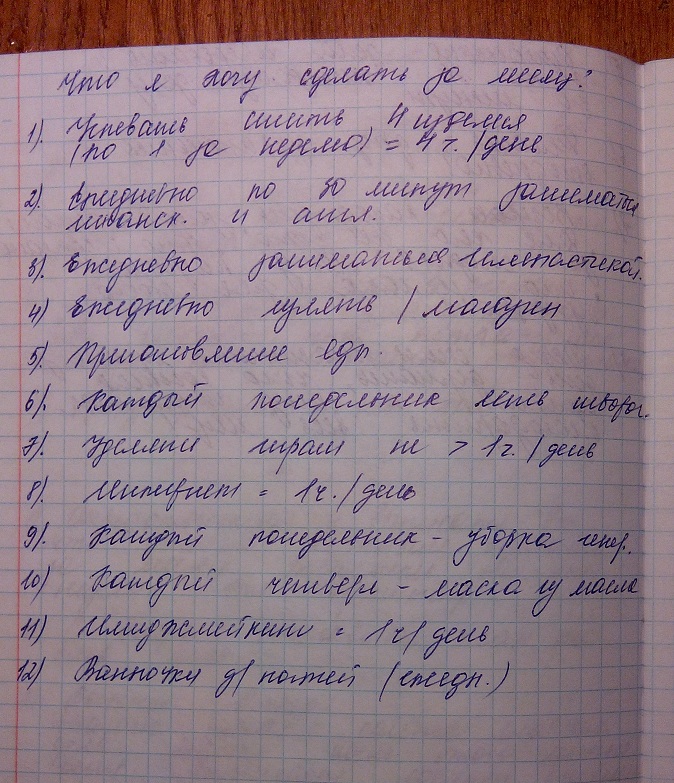 Что я хочу сделать за зиму?
1). Успевать сшить 4 изделия
(по 1 за неделю) = 4 ч./день
2). Ежедневно по 30 минут заниматься
испанск. и англ.
3). Ежедневно заниматься гимнастикой.
4) Ежедневно гулять / магазин
5). Приготовление еды.
6). Каждый понедельник есть творог.
7). Уделять играм не > 1 ч. / день
8). Интернет = 1ч. / день
9). Каждый понедельник - уборка генер.
10) Каждый четверг - маска из масла
11) Имиджмейкинг = 1ч/ день
12) Ванночки д/ ногтей (ежедн.)